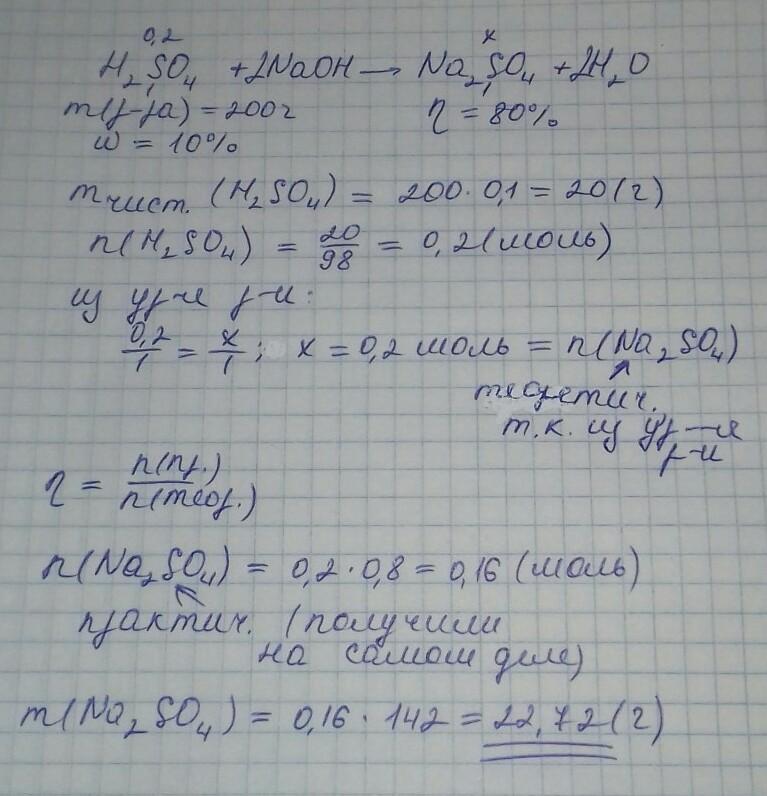 0,2 x
H₂SO₄ + 2NaOH → Na₂SO₄ + 2H₂O
m(р-ра) = 200г η = 80%
ω = 10%
m чист. (H₂SO₄) = 200·0,1 = 20(г)
n(H₂SO₄) = 20/98 = 0,2(моль)
из ур-я р-и:
0,2/1 = x/1; x = 0,2 моль = n(Na₂SO₄)
теоретич.
т.к. из ур-я
р-и
η = n(пр.)/n(теор.)
n(Na₂SO₄) = 0,2·0,8 = 0,16 (моль)
практич. (получили
на самом деле)
m(Na₂SO₄) = 0,16·142 = 22,72(г)